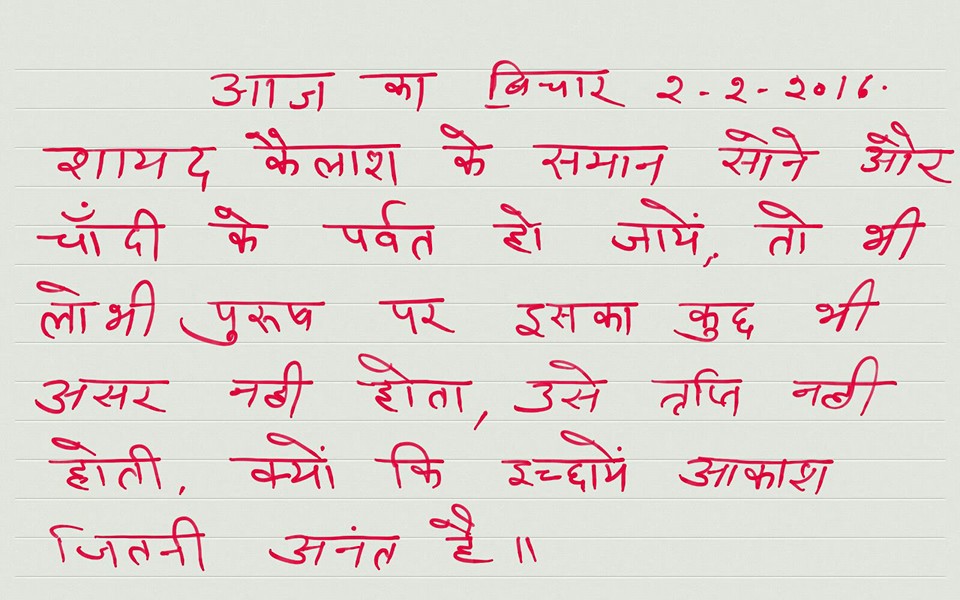 आज का बिचार २-२-२०१६.
शायद कैलाश के समान सोने और
चाँदी के पर्वत हो जायें, तो भी
लोभी पुरूष पर इसका कुछ भी
असर नही होता, उसे तृप्ति नही
होती, क्यों कि इच्छायें आकाश
जितनी अनंत है॥